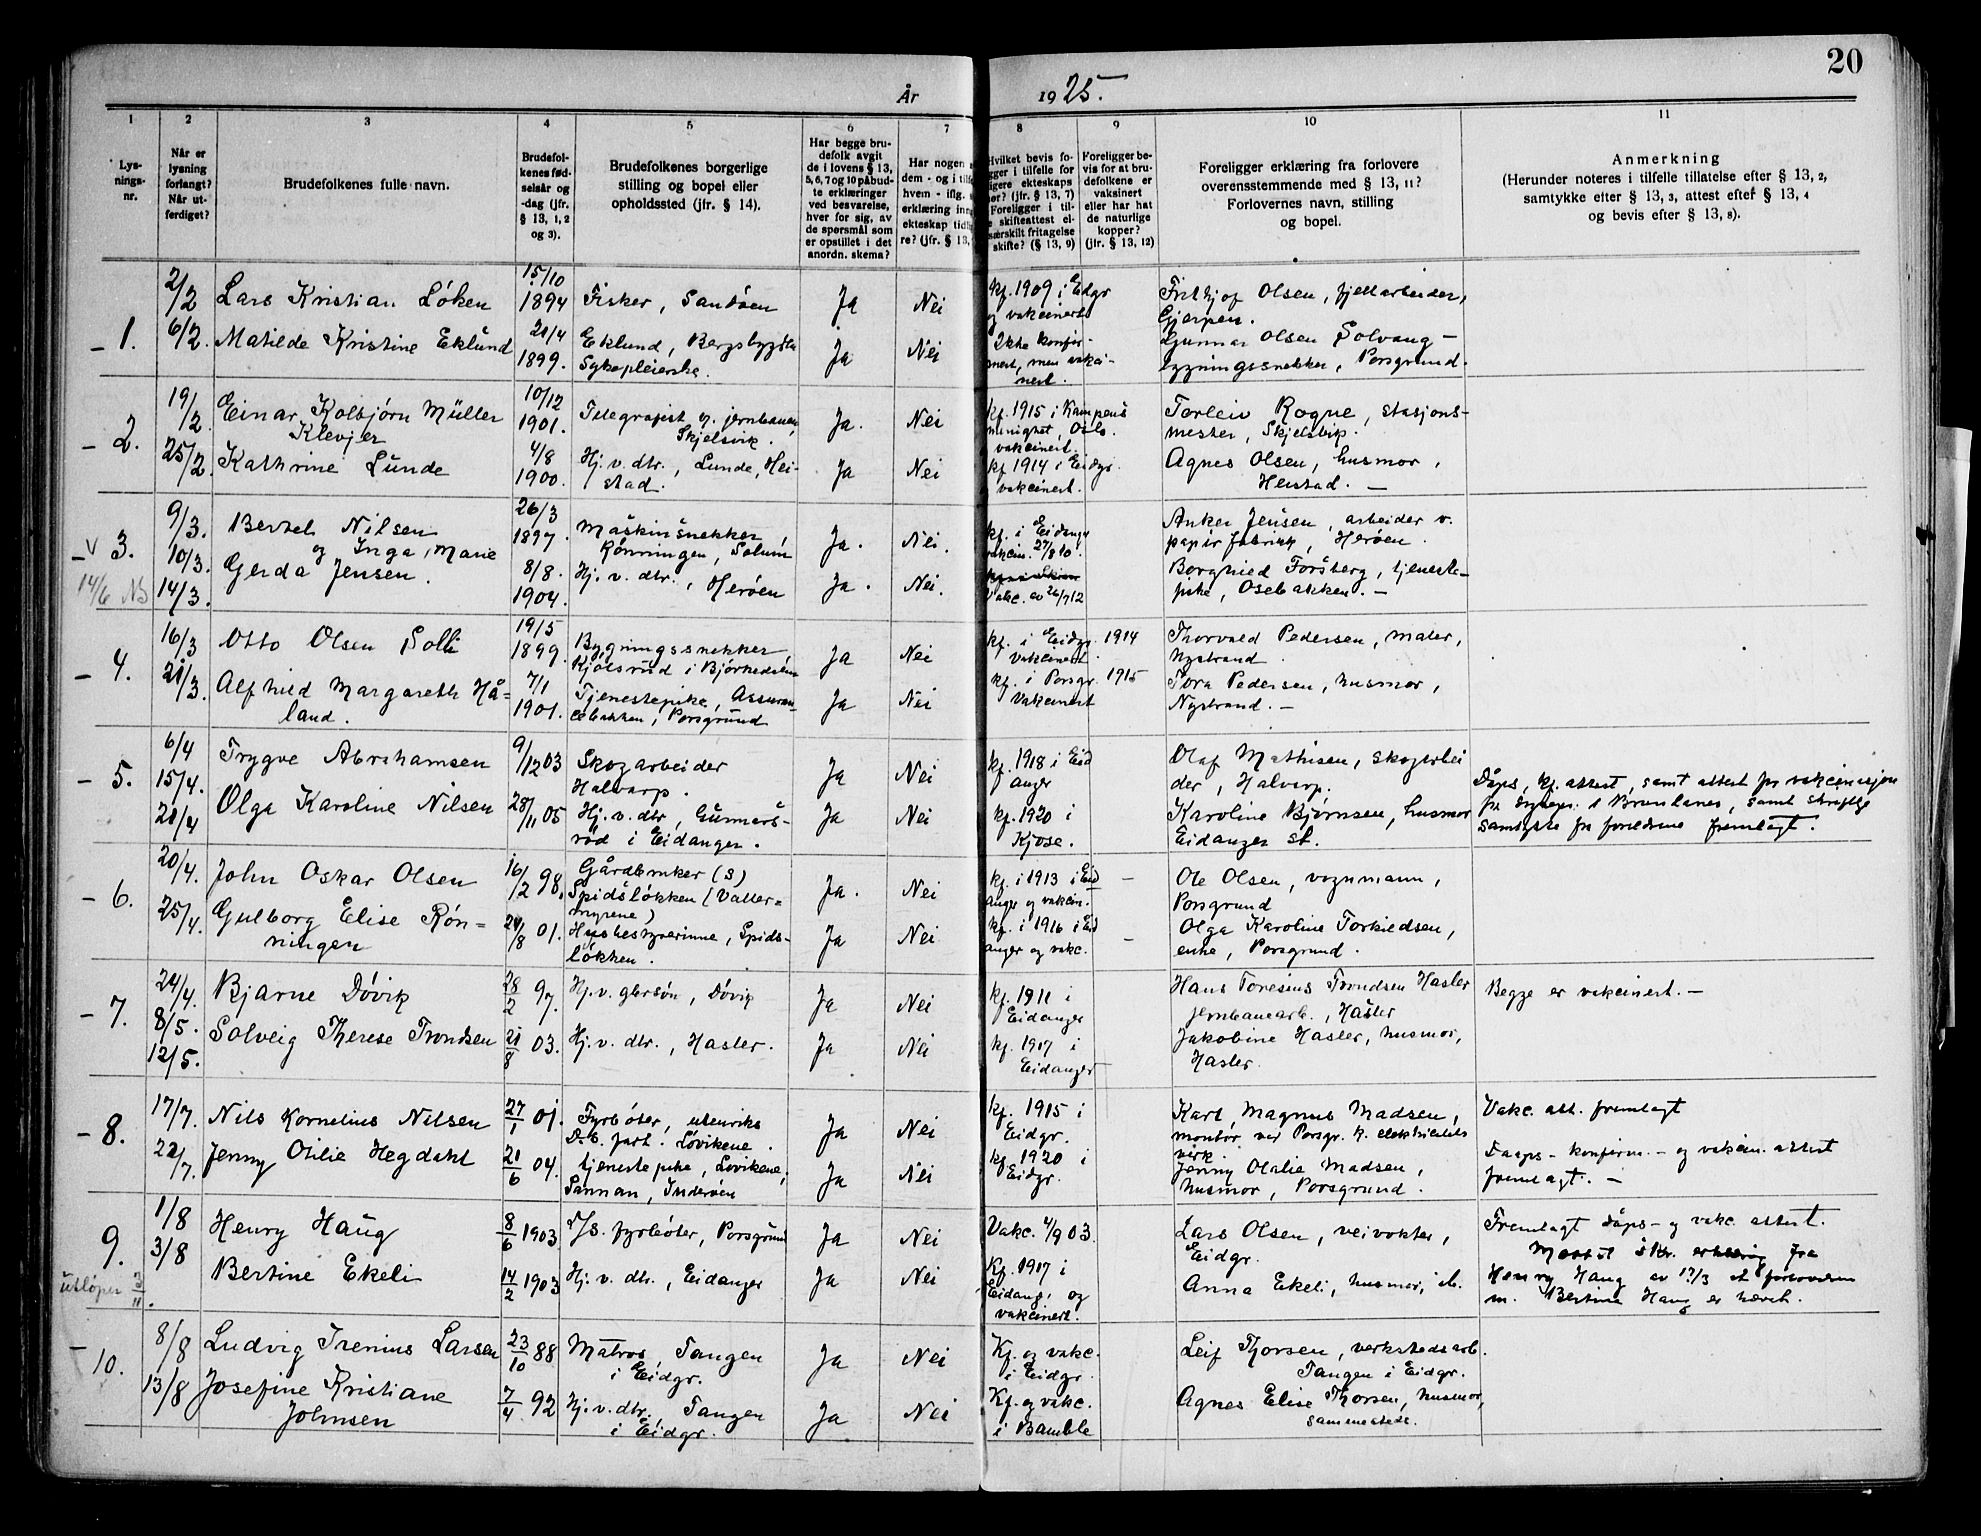 20
År 1925.
1 2 3 4 5 6 7 8 9 10 11
Lys-
nings-
nr.
Når er
lysning
forlangt?
Når ut-
ferdiget?
Brudefolkenes fulle navn.
Brudefol-
kenes fød-
selsår og
-dag (jfr.
§ 13, 1, 2
og 3).
Brudefolkenes borgerlige
stilling og bopel eller
opholdssted (jfr. § 14).
Har begge bru-
defolk avgit
de i lovens § 13,
5, 6, 7 og 10 påbud-
te erklæringer
ved besvarelse,
hver for sig, av
de spørsmål som
er opstillet i det
anordn. skema?
Har nogen
dem - og i tilf
hvem - iflg.
erklæring inn
ekteskap tidl
re? (jfr. § 13,
Hvilket bevis fo-
gger i tilfelle for
ligere ekteskaps
hør? (jfr. § 13, 7)
Foreligger i til-
e skifteattest el-
særskilt fritagelse
skifte? (§ 13, 9)
Foreligger be-
vis for at bru-
defolkene er
vaksinert
eller har hat
de naturlige
kopper?
(jfr. § 13, 12)
Foreligger erklæring fra forlovere
overensstemmende med § 13, 11?
Forlovernes navn, stilling
og bopel.
Anmerkning
(Herunder noteres i tilfelle tillatelse efter § 13, 2,
samtykke efter § 13, 3, attest efter § 13, 4
og bevis efter § 13, 8).
1. 2/2 6/2. Lars Kristian Löken 15/10 1894 Fisker, Sandöen Ja Nei kf. 1909 i Eidgr
og vakcinert Frithjof Olsen, fjellarbeider,
Gjerpen.
Matilde Kristine Eklund 21/4 1899. Eklund, Bergsbygda
Sykepleierske. Ja Nei Ikke konfir-
mert, men vakci-
nert. Gunnar Olsen Solvang -
bygningssnekker, Porsgrund.
2. 19/2. 25/2. Einar Kolbjörn Müller
Klevjer 10/12 1901. Telegrafist v. jernbanen,
Skjelsvik. Ja. Nei kf. 1915 i Kampens
menighet, Oslo.
vakcinert. Torleiv Rogne, stasjons-
mester, Skjelsvik.
Kathrine Lunde 4/8 1900. Hj. v. dtr., Lunde, Hei-
stad. Ja Nei kf 1914 i Eidgr.
vakcinert. Agnes Olsen, husmor,
Heistad. -
3. 14/6 NB 9/3. 10/3. 14/3. Bertel Nilsen
og Inga, Marie 26/3 1897. Maskinsnekker,
Rönningen, Solum Ja. Nei. kf. i Eidangr
vakcin. 27/8 10. Anker Jensen, arbeider v.
papir fabrikk, Heröen.
Gerda Jensen. 8/8. 1904. Hj. v. dtr., Heröen Ja. Nei.
Vakc. av 26/7 12 Borghild Forsberg, tjeneste-
pike, Osebakken. -
4. 16/3 21/3. Otto Olsen Solli 19/5 1899. Bygningssnekker,
Kjölsrud i Björkedalen Ja Nei kf. i Eidgr. 1914
Vakcinert. Thorvald Pedersen, maler,
Nystrand.
Alfhild Margareth Hå-
land. 7/1 1901. Tjenestepike, Assuran-
cebakken, Porsgrund Ja Nei kf. i Porsgr. 1915
Vakcinert Tora Pedersen, husmor,
Nystrand. -
5. 6/4 15/4. 21/4 Trygve Abrahamsen 9/12 03 Skogarbeider
Halvarp. Ja Nei kf. 1918 i Eid
anger Olaf Mathisen, skogarbei
der, Halvarp.
Olga Karoline Nilsen 28/11 05 Hj. v. dtr., Gunnars-
röd i Eidanger. Ja Nei kf. 1920 i
Kjose. Karoline Björnsen, husmor
Eidanger st.
Dåps, kf. attest, samt attest for vakcinasjon
fr. i Brunlanes, samt skriftlig
samtykke fr foreldrene fremlagt.
6. 20/4. 25/4. John Oskar Olsen 16/2 98. Gårdbruker (s)
Spidslökken (Valler-
myrene) Ja. Nei kf. i 1913 i Eid
anger og vakcin. - Ole Olsen, vognmann,
Porsgrund
Gulborg Elise Rön-
ningen 24/8 01. Husbestyrerinne, Spids-
lökken. Ja Nei kf. i 1916 i Eid
anger og vakc. - Olga Karoline Torkildsen,
enke, Porsgrund.
7. 24/4. 8/5. 12/5. Bjarne Dövik 28/2 97. Hj. v. gbrsön, Dövik Ja Nei kf. 1911 i
Eidanger Hans Toresius Trondsen Hasler
jernbanearb., Hasler Begge er vakcinert. -
Solveig Therese Trondsen 21/8 03. Hj. v. dtr., Hasler. Ja Nei kf. 1917 i
Eidanger Jakobine Hasler, husmor,
Hasler.
8. 17/7. 22/7. Nils Kornelius Nilsen 27/1 01. Fyrböter, utenriks
D.S. fart. Lövikene. Ja Nei kf. 1915 i
Eidgr. Karl Magnus Madsen,
montör ved Porsgr. k. elektricitets
virk Vakc. att. fremlagt
Jenny Otilie Hegdahl 21/6 04. tjenestepike, Lövikene,
Sannan, Inderöen Ja Nei kf. 1920 i
Eidgr. Jenny Otalie Madsen,
husmor, Porsgrund. Daaps - konfirm. - og vakcin. attest
fremlagt. -
9. utlöper 3/11. 1/8 3/8 Henry Haug 8/6 1903 D/S. fyrböter, Porsgrund Ja Nei Vakc. 4/9 03. Lars Olsen, veivokter,
Eidgr.
Bertine Ekeli 14/2 1903 Hj. v. dtr., Eidanger Ja Nei Kf. 1917 i
Eidang. og
vakcinert. Anna Ekeli, husmor, ib.
Fremlagt dåps- og vakc. attest.
skr. erklæring fra
Henry Haug av 17/3 at forlovelsen
m. Bertine Haug er hævet.
10. 8/8 13/8 Ludvig Irenius Larsen 23/10 88 Matros, Tangen
i Eidgr. Ja Nei Kf. og vakc.
i Eidgr. Leif Thorsen, verkstedsarb.
Tangen i Eidgr.
Josefine Kristiane
Johnsen 7/4 92 Hj. v. dtr. Tangen
i Eidgr. Ja Nei Kf. og vakc.
i Bamble Agnes Elise Thorsen, husmor,
sammesteds.